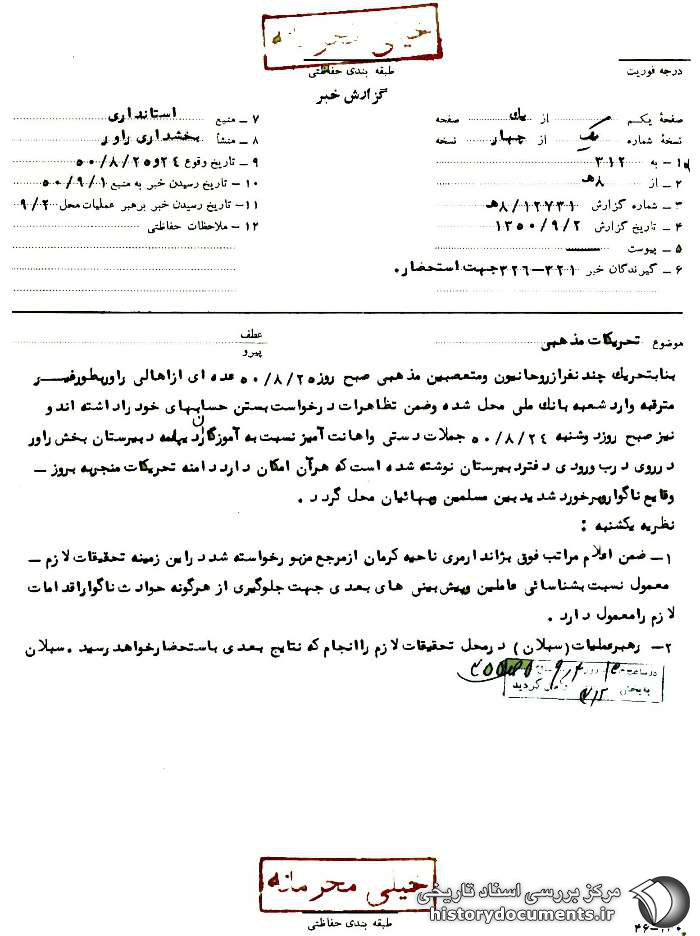 خیلی محرمانه
طبقه بندی حفاظتی
درجه فوریت
گزارش خبر
صفحهٔ یکم از یک صفحه
نسخهٔ شماره یک از چهار نسخه
۱– به ۳۱۲
۲– از ۸ﻫ
۳– شماره گزارش ۸/۱۲۷۳۱ﻫ
۴– تاریخ گزارش ۱۳۵۰/۹/۲
۵– پیوست
۶– گیرندگان خبر ۳۲۱–۳۲۶ جهت استحضار.
۷– منبع استانداری
۸– منشأ بخشداری راور
۹– تاریخ وقوع ۲۴و۵۰/۸/۲۵
۱۰– تاریخ رسیدن خبر به منبع ۵۰/۹/۱
۱۱– تاریخ رسیدن خبر برهبر عملیات محل ۹/۲
۱۲– ملاحظات حفاظتی
موضوع تحریکات مذهبی
عطف
پیرو
بنابتحریک چند نفر از روحانیون و متعصبین مذهبی صبح روز ۵۰/۸/۲۵ عده ای از اهالی راور بطور غیر
مترقبه وارد شعبه بانک ملی محل شده وضمن تظاهرات درخواست بستن حسابهای خود را داشته اند و
نیز صبح روز دوشنبه ۵۰/۸/۲۴ جملات دستی واهانت آمیز نسبت به آموزگاران دبیرستان بخش راور
در روی درب ورودی دفتر دبیرستان نوشته شده است که هر آن امکان دارد دامنه تحریکات منجربه بروز –
وقایع ناگوار وبرخورد شدید بین مسلمین وبهائیان محل گردد .
نظریه یکشنبه :
۱– ضمن اعلام مراتب فوق بژاندارمری ناحیه کرمان از مرجع مزبور خواسته شد در این زمینه تحقیقات لازم –
معمول نسبت بشناسائی عاملین وپیش بینی های بعدی جهت جلوگیری از هرگونه حوادث ناگوار اقدامات
لازم را معمول دارد .
۲– رهبرعملیات (سبلان) در محل تحقیقات لازم را انجام که نتایج بعدی باستحضار خواهد رسید . سبلان
در ساعت روز ۹/۴
به بخش ۳۱۲ واصل گردید
خیلی محرمانه
طبقه بندی حفاظتی
مرکز بررسی اسناد تاریخی
historydocuments.ir